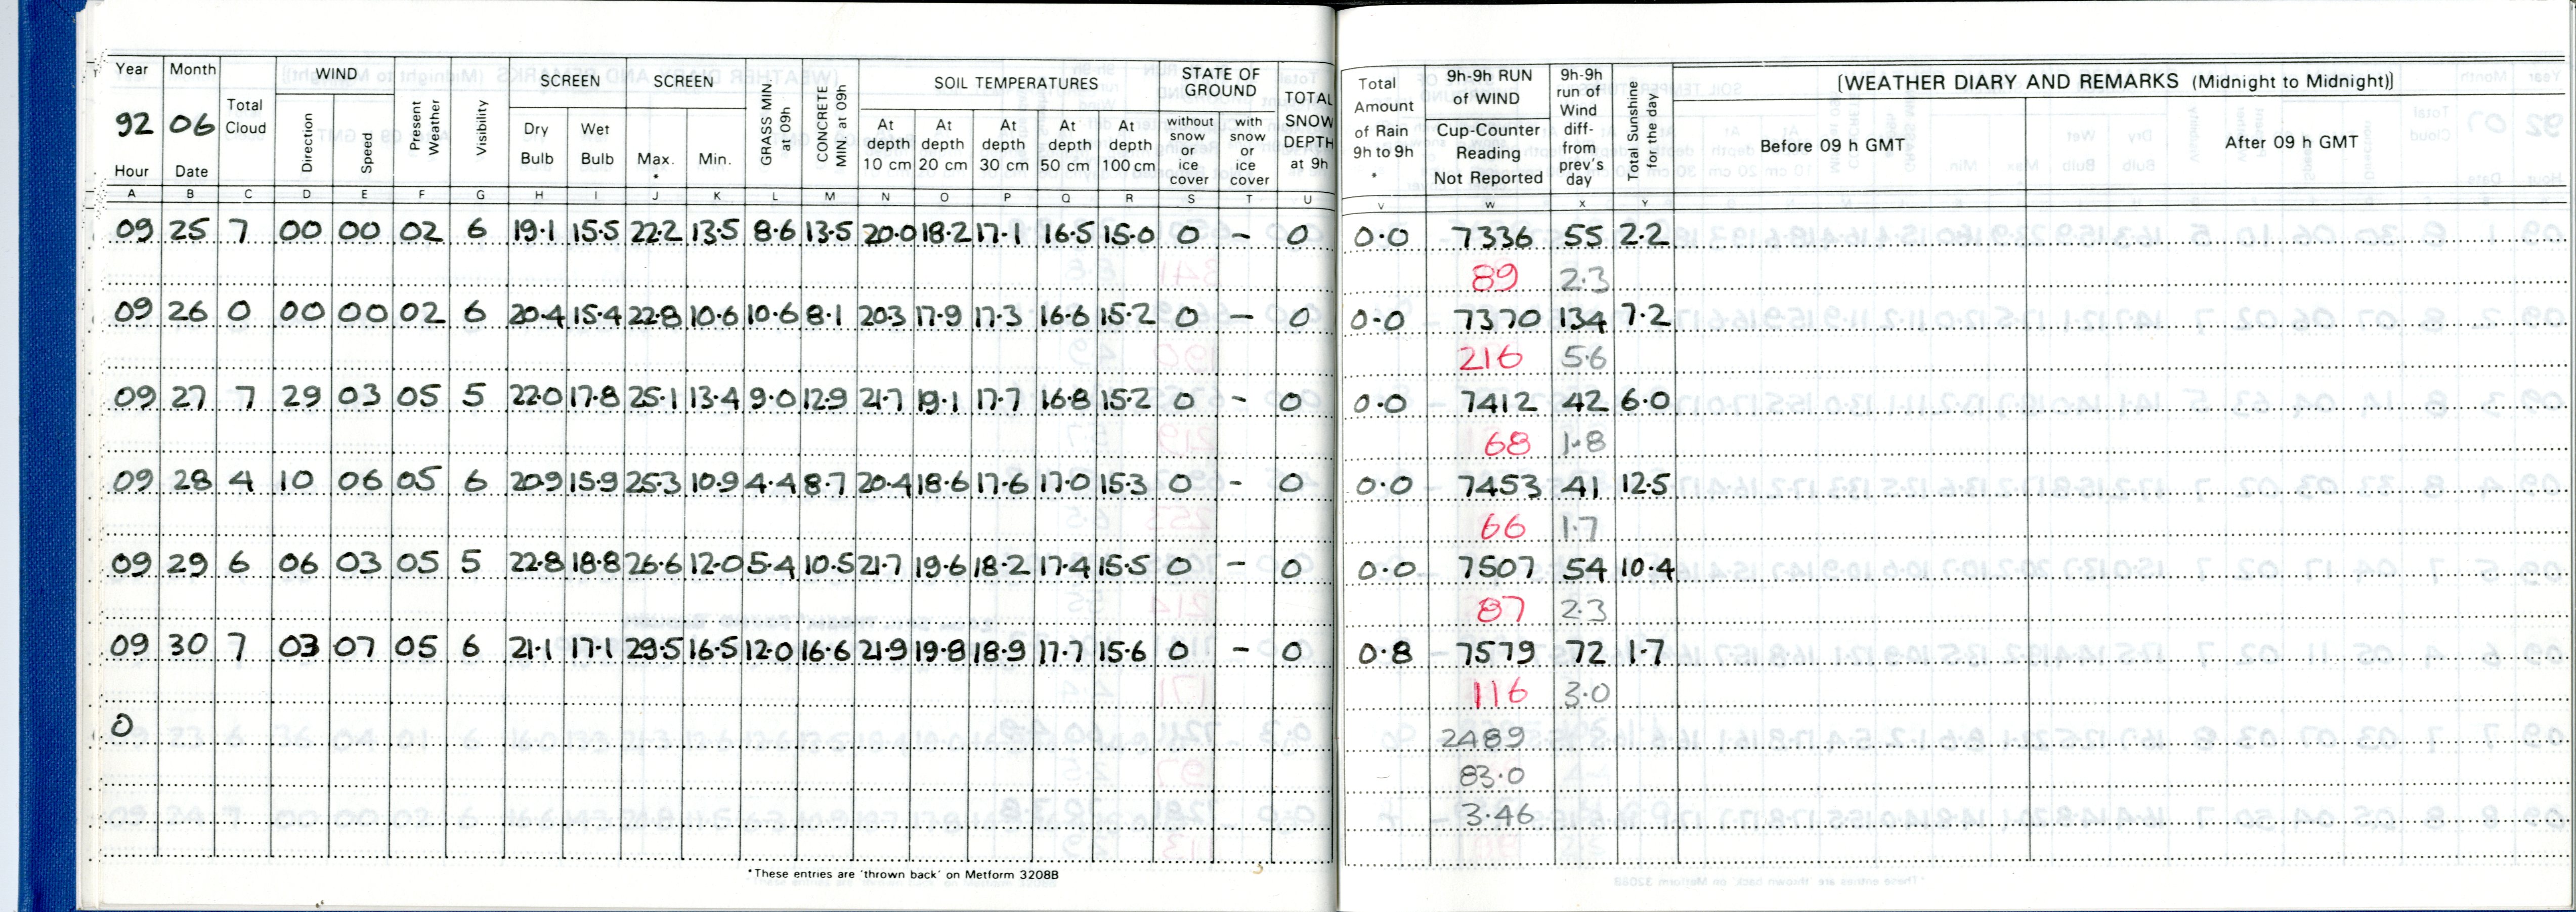 Year Month Total Cloud WIND Present Weather Visibility SCREEN SCREEN GRASS MIN at 09h CONCRETE MIN. at 09h SOIL TEMPERATURES STATE OF GROUND TOTAL SNOW DEPTH at 9h Total Amount of Rain 9h to 9h * 9h-9h RUN of WIND 9h-9h run of Wind diff- from prev's day Total Sunshine for the day [WEATHER DIARY AND REMARKS (Midnight to Midnight)]
92 06 Direction Speed Dry Bulb Wet Bulb Max. * Min. At depth 10 cm At depth 20 cm At depth 30 cm At depth 50 cm At depth 100 cm without snow or ice cover with snow or ice cover Cup-Counter Reading Not Reported Before 09 h GMT After 09 h GMT
Hour Date
A B C D E F G H I J K L M N O P Q R S T U V W X Y
09 25 7 00 00 02 6 19.1 15.5 22.2 13.5 8.6 13.5 20.0 18.2 17.1 16.5 15.0 0 - 0 0.0 7336 55 2.2
89 2.3
09 26 0 00 00 02 6 20.4 15.4 22.8 10.6 10.6 8.1 20.3 17.9 17.3 16.6 15.2 0 - 0 0.0 7370 134 7.2
216 5.6
09 27 7 29 03 05 5 22.0 17.8 25.1 13.4 9.0 12.9 21.7 19.1 17.7 16.8 15.2 0 - 0 0.0 7412 42 6.0
68 1.8
09 28 4 10 06 05 6 20.9 15.9 25.3 10.9 4.4 8.7 20.4 18.6 17.6 17.0 15.3 0 - 0 0.0 7453 41 12.5
66 1.7
09 29 6 06 03 05 5 22.8 18.8 26.6 12.0 5.4 10.5 21.7 19.6 18.2 17.4 15.5 0 - 0 0.0 7507 54 10.4
87 2.3
09 30 7 03 07 05 6 21.1 17.1 29.5 16.5 12.0 16.6 21.9 19.8 18.9 17.7 15.6 0 - 0 0.8 7579 72 1.7
116 3.0
0 2489
83.0
3.46
*These entries are 'thrown back' on Metform 3208B